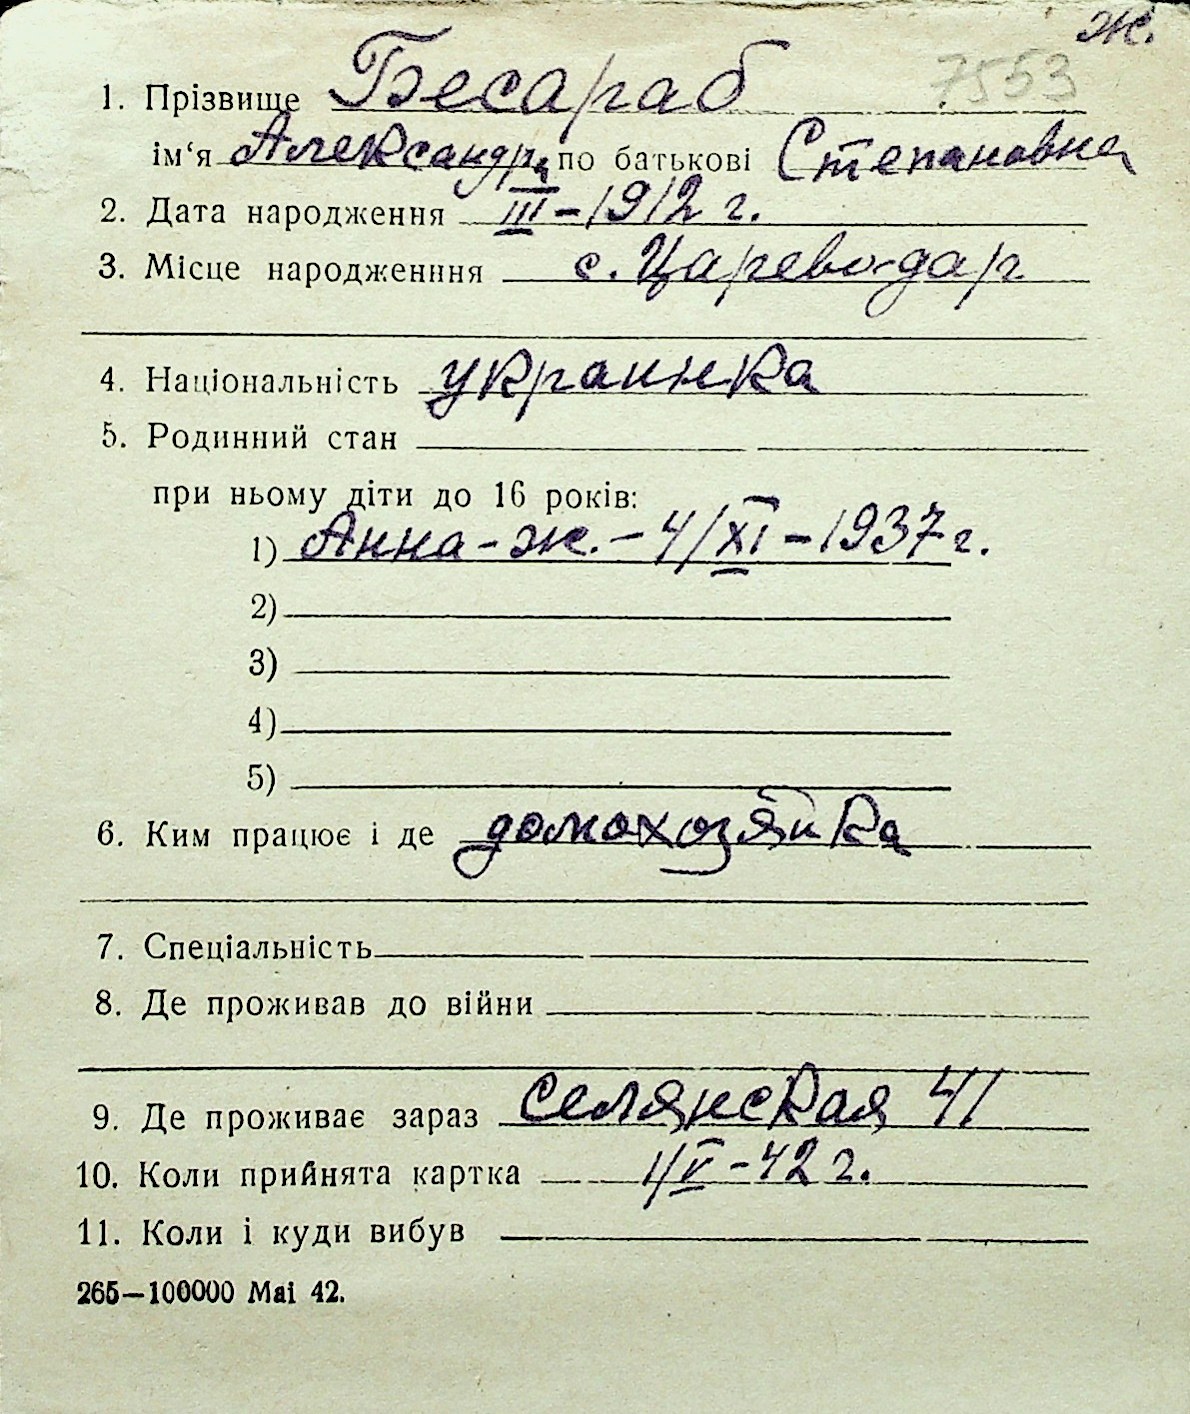 ж.
7553
1. Прізвище Бесараб
ім‘я Александра по батькові Степановна
2. Дата народження III – 1912 г.
3. Місце народженння с. Царево-дар
4. Національність украинка
5. Родинний стан
при ньому діти до 16 років:
1) Анна – ж. – 4/XI – 1937 г.
2)
3)
4)
5)
6. Ким працює і де домохозяйка
7. Спеціальність
8. Де проживав до війни
9. Де проживає зараз Селянская 41
10. Коли прийнята картка 1/V – 42 г.
11. Коли і куди вибув
265—100000 Mai 42.